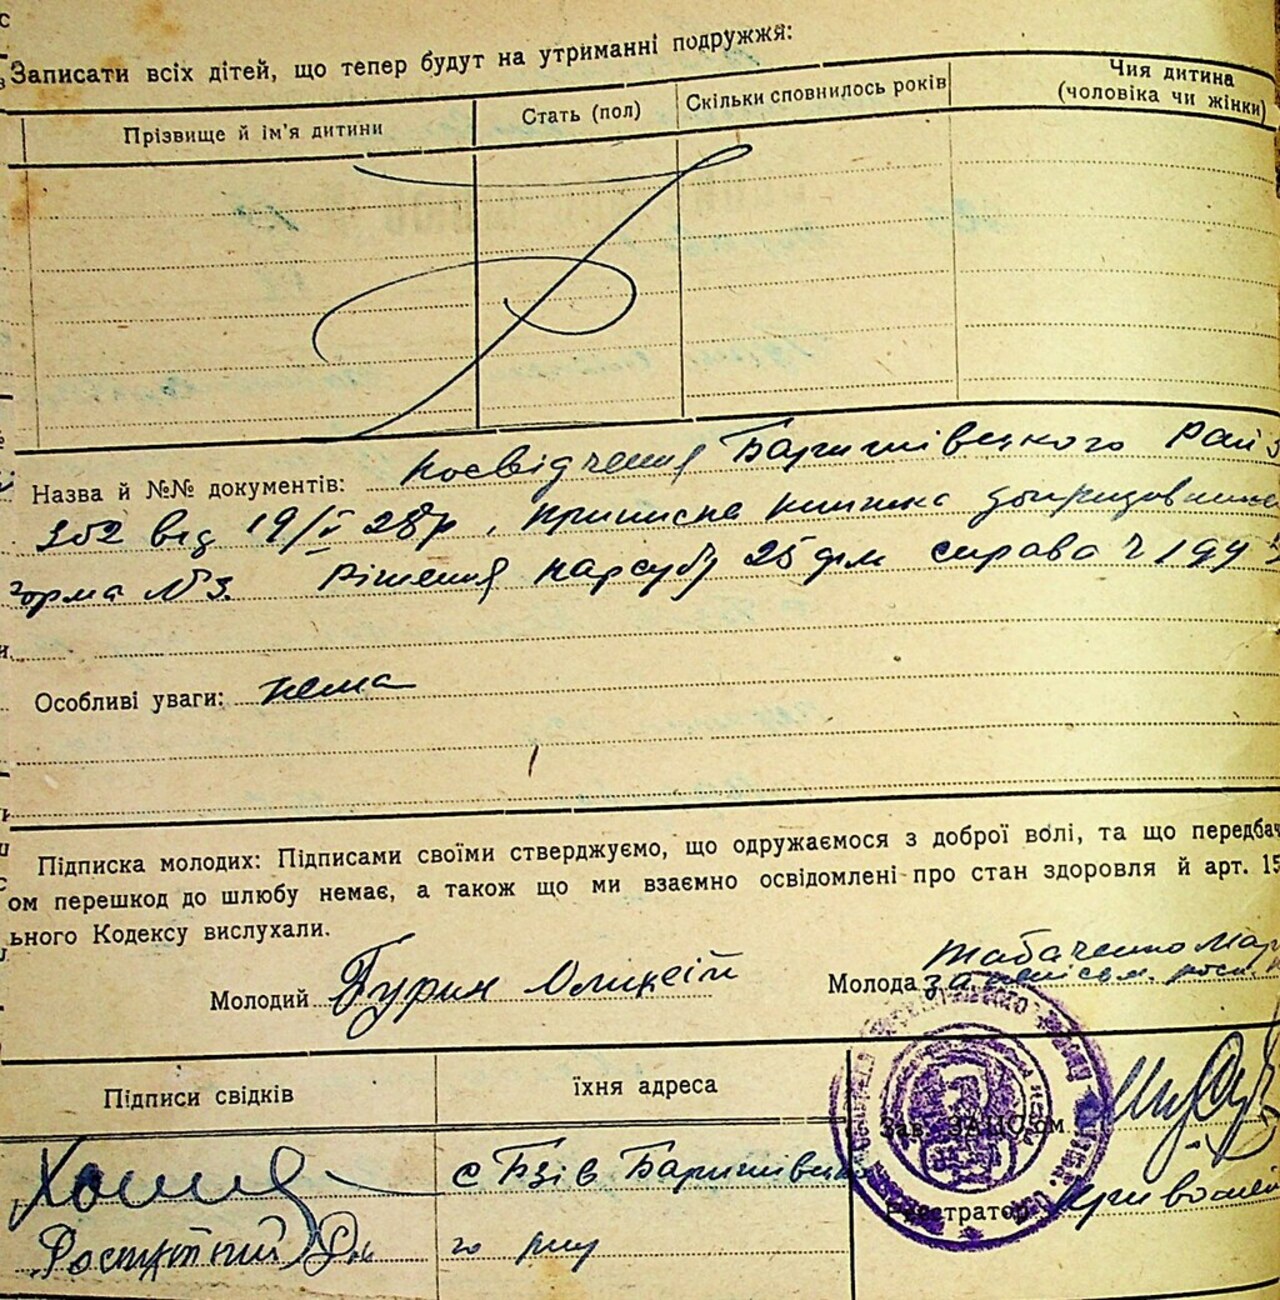 Записати всіх дітей, що тепер будут на утриманні подружжя:
Прізвище й ім'я дитини
Стать (пол)
Скільки сповнилось років
Чия дитина
(чоловіка чи жінки)
Назва й №№ документів: посвідчення Баришівецького Рай
352 від 19/V 28р, приписна книжка
форма №3. Рішення нарсуду 25 справа ч 194
Особливі уваги: нема
Підписка молодих: Підписами своїми стверджуємо, що одружаємося з доброї волі, та що передбач
ом перешкод до шлюбу немає, а також що ми взаємно освідомлені про стан здоровля й арт. 15
ьного Кодексу вислухали.
Молодий Бурин Оликсій
Молода Табаченко Мар
Підписи свідків
їхня адреса
Зав. ЗАГС'ом
с Бзів Баришівець
Реєстратор
го р-ну